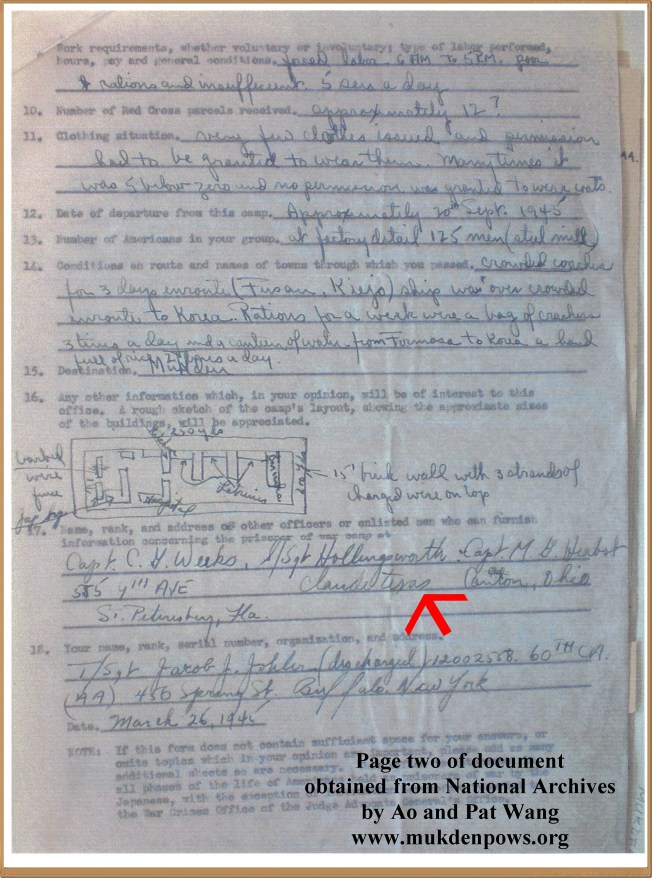 Work requirements, whether voluntary or involuntary; type of labor performed,
hours, pay and general conditions. forced labor 6 AM To 5 P.M. poor
& rations and insufficient. 5 sen a day
10. Number of Red Cross parcels received. approximately 12?
11. Clothing situation. very few clothes issued and permission
had to be granted to wear them. Many times it
was 5 below zero and no permission was granted to wear coats.
12. Date of departure from this camp. Approximately 20th Sept. 1945
13. Number of Americans in your group. at factory detail 125 men (steel mill)
14. Conditions en route and names of towns through which you passed. crowded coaches
for 3 days enroute (Fusan, Keijo) ship was over crowded
enroute to Korea. Rations for a week were a bag of crackers
3 times a day and a canteen of water from Formosa to Korea a hand
full of rice 2 times a day.
15. Destination. Mukden
16. Any other information which, in your opinion, will be of interest to this
office. A rough sketch of the camp's layout, showing the approximate sizes
of the buildings, will be appreciated.
250 yds
barbed
wire
fence
Hospital
Latrines
15' brick wall with 3 strands of
charged wire on top
17. Name, rank, and address of other officers or enlisted men who can furnish
information concerning the prisoner of war camp at
Capt. C. G. Weeks, S/Sgt Hollingsworth Capt M G Herbst
555 4TH AVE Claude texas Canton, Ohio
St. Petersburg, Fla.
18. Your name, rank, serial number, organization, and address.
T/Sgt Jacob J. (discharged) 12002558. 60TH CA.
(AA) 456 Spring St. Buffalo. New York
Date. March 26, 194
NOTE: If this form does not contain sufficient space for your answers, or
omits topics which in your opinion are important, please add as many
additional sheets as are necessary.
all phases of the life of American prisoners of war by the
Japanese, with the exception of
the War Crimes Office of the Judge Advocate General's Office.
Page two of document
obtained from National Archives
by Ao and Pat Wang
www.mukdenpows.org